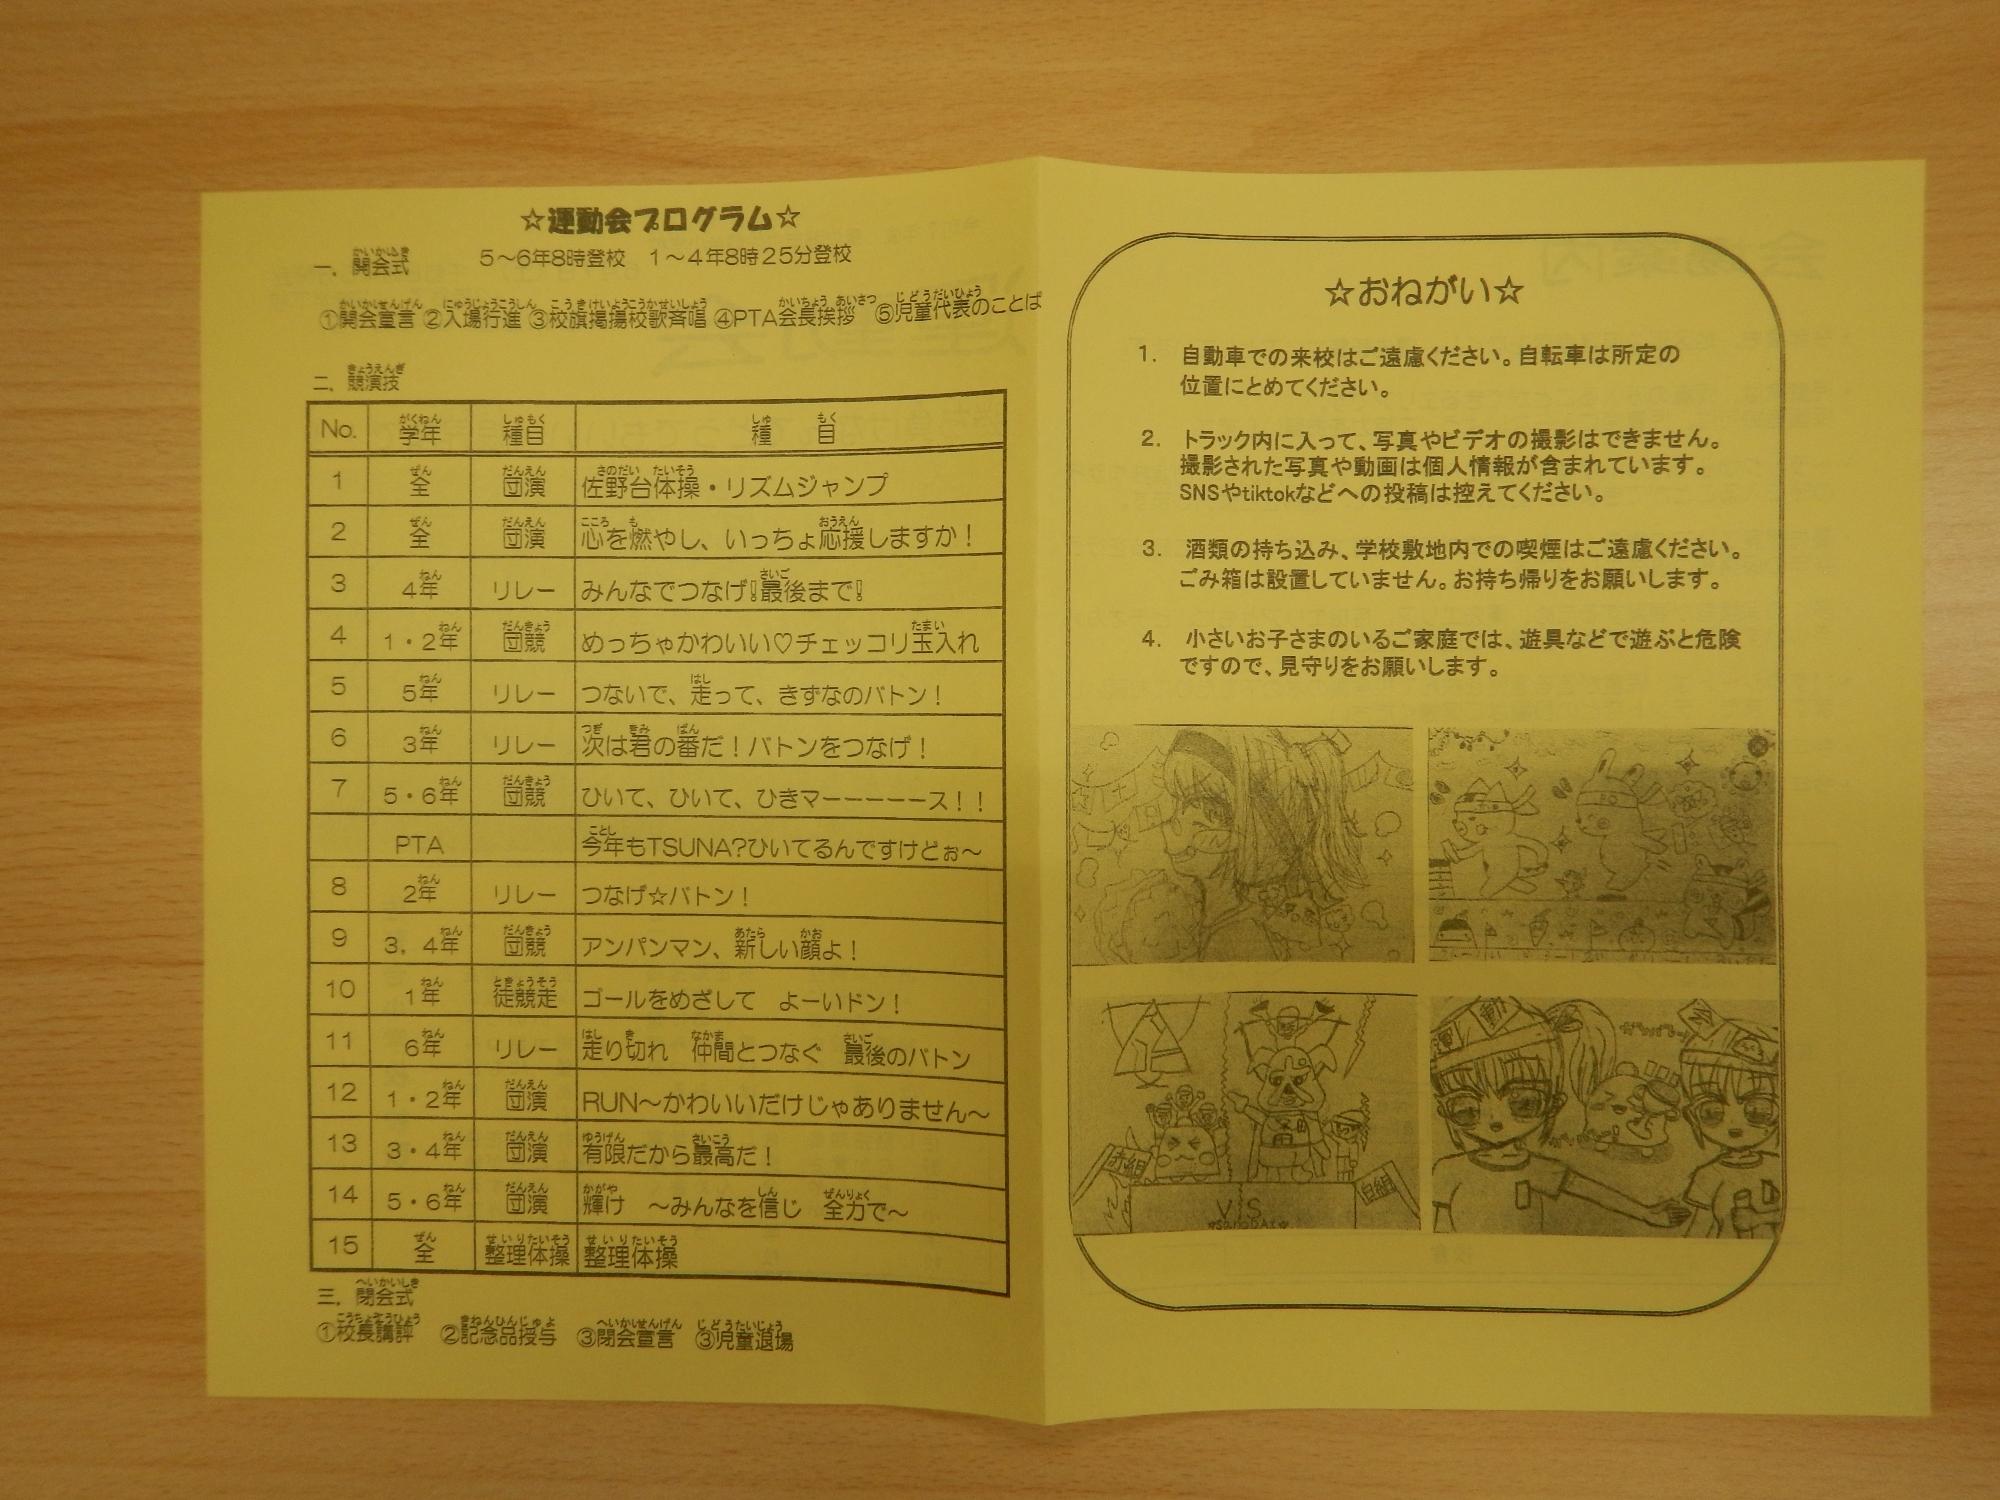 ☆運動会プログラム☆
一．開会式　5～6年8時登校　1～4年8時25分登校
①開会宣言 ②入場行進 ③校旗掲揚校歌斉唱 ④PTA会長挨拶 ⑤児童代表のことば
二．競演技
No. 学年 種目 種目
1 全 団演 佐野台体操・リズムジャンプ
2 全 団演 心を燃やし、いっちょ応援しますか！
3 4年 リレー みんなでつなげ！最後まで！
4 1・2年 団競 めっちゃかわいい♡チェッコリ玉入れ
5 5年 リレー つないで、走って、きずなのバトン！
6 3年 リレー 次は君の番だ！バトンをつなげ！
7 5・6年 団競 ひいて、ひいて、ひきマーーーーース！！
PTA 今年もTSUNA?ひいてるんですけどぉ～
8 2年 リレー つなげ☆バトン！
9 3，4年 団競 アンパンマン、新しい顔よ！
10 1年 徒競走 ゴールをめざして　よーいドン！
11 6年 リレー 走り切れ　仲間とつなぐ　最後のバトン
12 1・2年 団演 RUN～かわいいだけじゃありません～
13 3・4年 団演 有限だから最高だ！
14 5・6年 団演 輝け　～みんなを信じ　全力で～
15 全 整理体操 整理体操
三．閉会式
①校長講評　②記念品授与　③閉会宣言　③児童退場
☆おねがい☆
1.　自動車での来校はご遠慮ください。自転車は所定の
位置にとめてください。
2.　トラック内に入って、写真やビデオの撮影はできません。
撮影された写真や動画は個人情報が含まれています。
SNSやtiktokなどへの投稿は控えてください。
3.　酒類の持ち込み、学校敷地内での喫煙はご遠慮ください。
ごみ箱は設置していません。お持ち帰りをお願いします。
4.　小さいお子さまのいるご家庭では、遊具などで遊ぶと危険
ですので、見守りをお願いします。
赤組
白組
VS